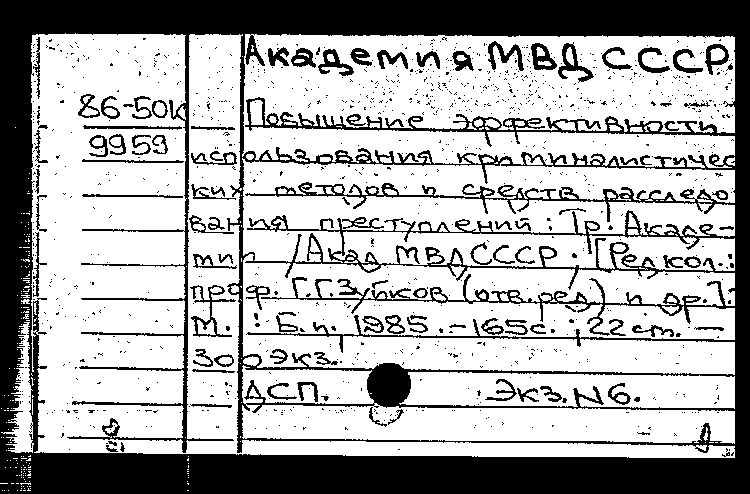 Академия МВД СССР.
86-50к
9959
Повышение эффективности
использования криминалистичес
ких методов и средств расследо
вания преступлений: Тр. Акаде-
мии /Акад МВД СССР. [Редкол.:
проф. Г.Г.Зуйков (отв.ред) и др.].
М.: Б.и., 1985.-165с.; 22 ст. —
300экз.
ДСП. Экз.N6.